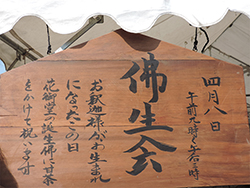 四月八日
午前十時〜午后三時
佛生会
お釈迦様がお生まれ
になったこの日
花御堂の誕生佛に甘茶
をかけて祝います